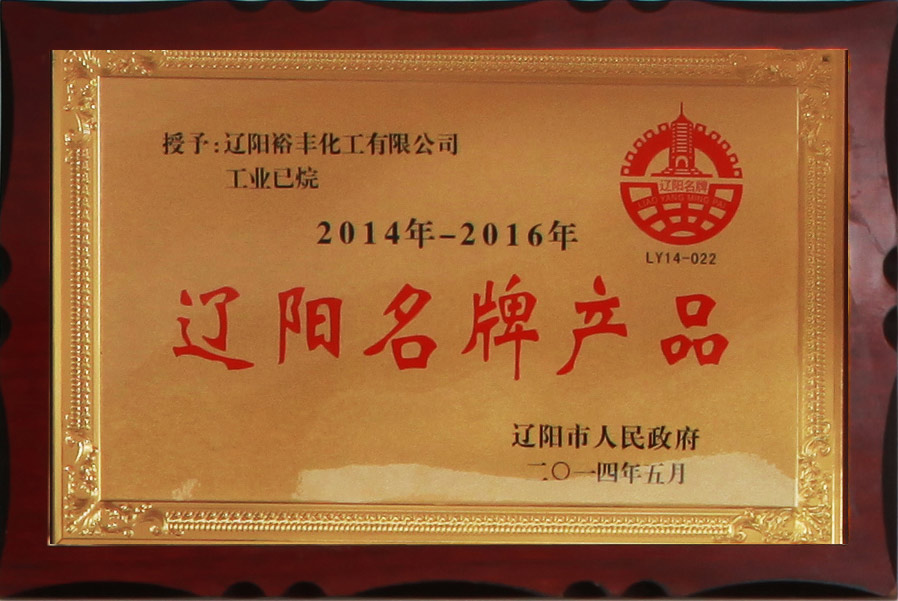 授予:辽阳裕丰化工有限公司
工业已烷
2014年-2016年
辽阳名牌
LIAO YANG MING PAI
LY14-022
辽阳名牌产品
辽阳市人民政府
二〇一四年五月